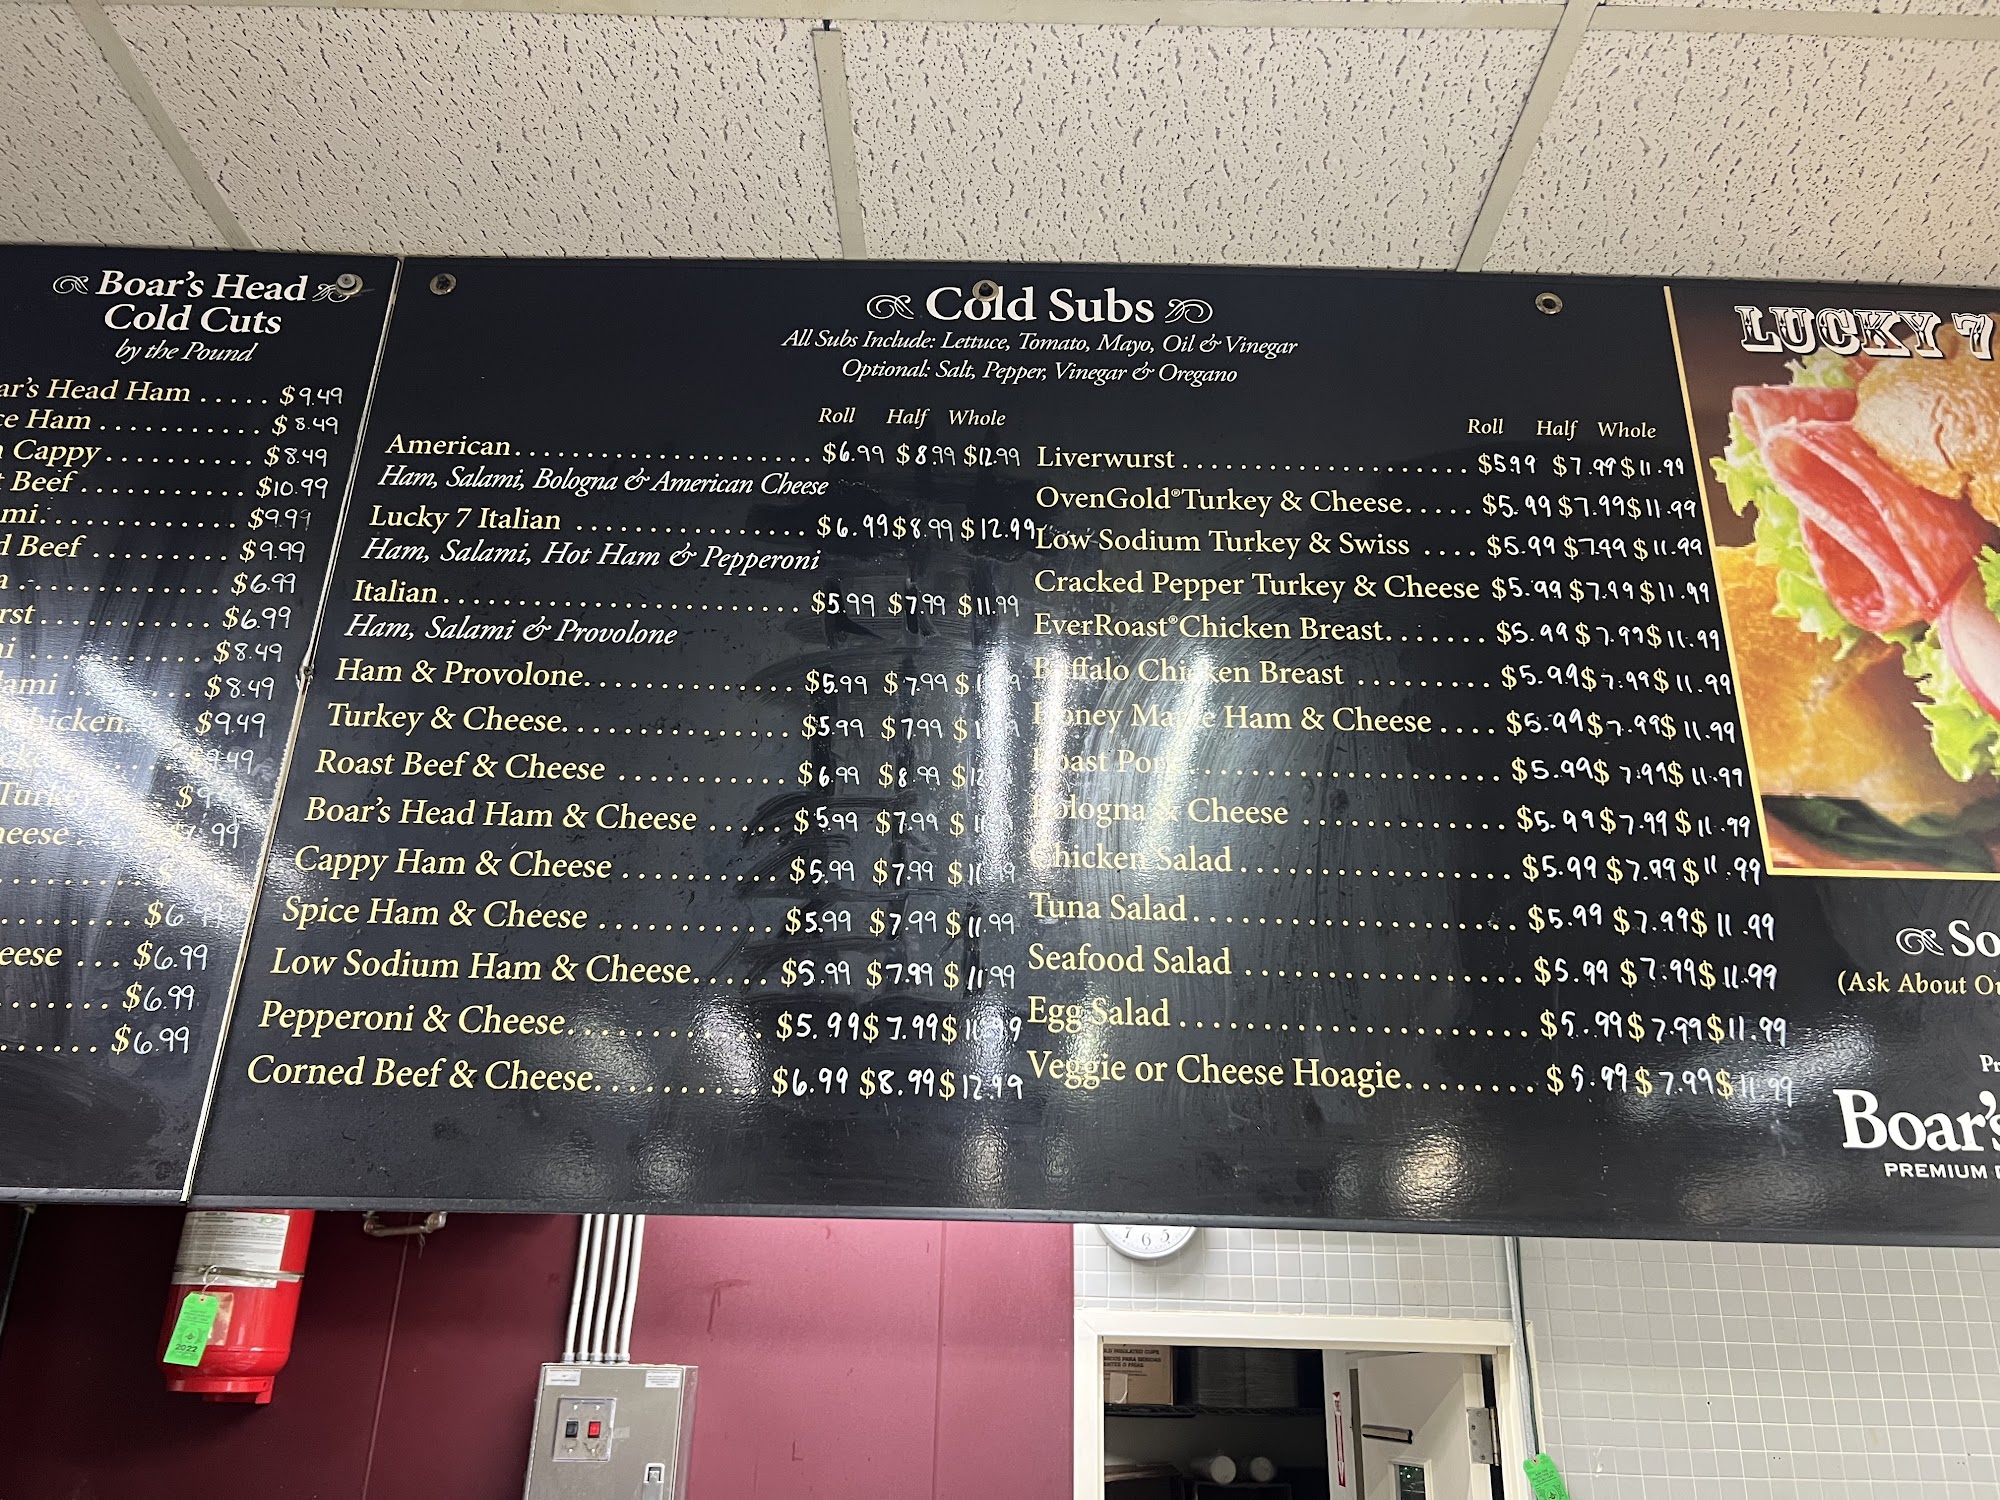 Boar's Head
Cold Cuts
by the Pound
ar's Head Ham ..... $9.49
ce Ham ........... $8.49
Cappy .......... $8.49
Beef ........... $10.99
mi ............. $9.99
d Beef .......... $9.99
............. $6.99
rst ............ $6.99
............ $8.49
ami ........ $8.49
chicken $9.49
Turkey
heese
$6.
eese ... $6.99
....... $6.99
...... $6.99
Cold Subs
All Subs Include: Lettuce, Tomato, Mayo, Oil & Vinegar
Optional: Salt, Pepper, Vinegar & Oregano
Roll Half Whole
American ..................... $6.99 $8.99 $12.99
Ham, Salami, Bologna & American Cheese
Lucky 7 Italian ................ $6.99 $8.99 $12.99
Ham, Salami, Hot Ham & Pepperoni
Italian .......................... $5.99 $7.99 $11.99
Ham, Salami & Provolone
Ham & Provolone ............... $5.99 $7.99
Turkey & Cheese ................ $5.99 $7.99
Roast Beef & Cheese ............ $6.99 $8.99
Boar's Head Ham & Cheese ..... $5.99 $7.99
Cappy Ham & Cheese ........... $5.99 $7.99
Spice Ham & Cheese ............ $5.99 $7.99 $11.99
Low Sodium Ham & Cheese ..... $5.99 $7.99 $11.99
Pepperoni & Cheese ............ $5.99 $7.99
Corned Beef & Cheese .......... $6.99 $8.99 $12.99
Roll Half Whole
Liverwurst .................... $599 $7.99 $11.99
OvenGold® Turkey & Cheese ..... $5.99 $7.99 $11.99
Low Sodium Turkey & Swiss .... $5.99 $7.99 $11.99
Cracked Pepper Turkey & Cheese $5.99 $7.99 $11.99
EverRoast® Chicken Breast ....... $5.99 $7.99 $11.99
Buffalo Chicken Breast ......... $5.99 $7.99 $11.99
Honey Maple Ham & Cheese .... $5.99 $7.99 $11.99
Roast Pork ...................... $5.99 $7.99 $11.99
Bologna & Cheese .............. $5.99 $7.99 $11.99
Chicken Salad ................... $5.99 $7.99 $11.99
Tuna Salad ...................... $5.99 $7.99 $11.99
Seafood Salad ................... $5.99 $7.99 $11.99
Egg Salad ....................... $5.99 $7.99 $11.99
Veggie or Cheese Hoagie ........ $5.99 $7.99 $11.99
LUCKY 7
So
(Ask About Ou
Pr
Boar's
PREMIUM
2022
7 6 5